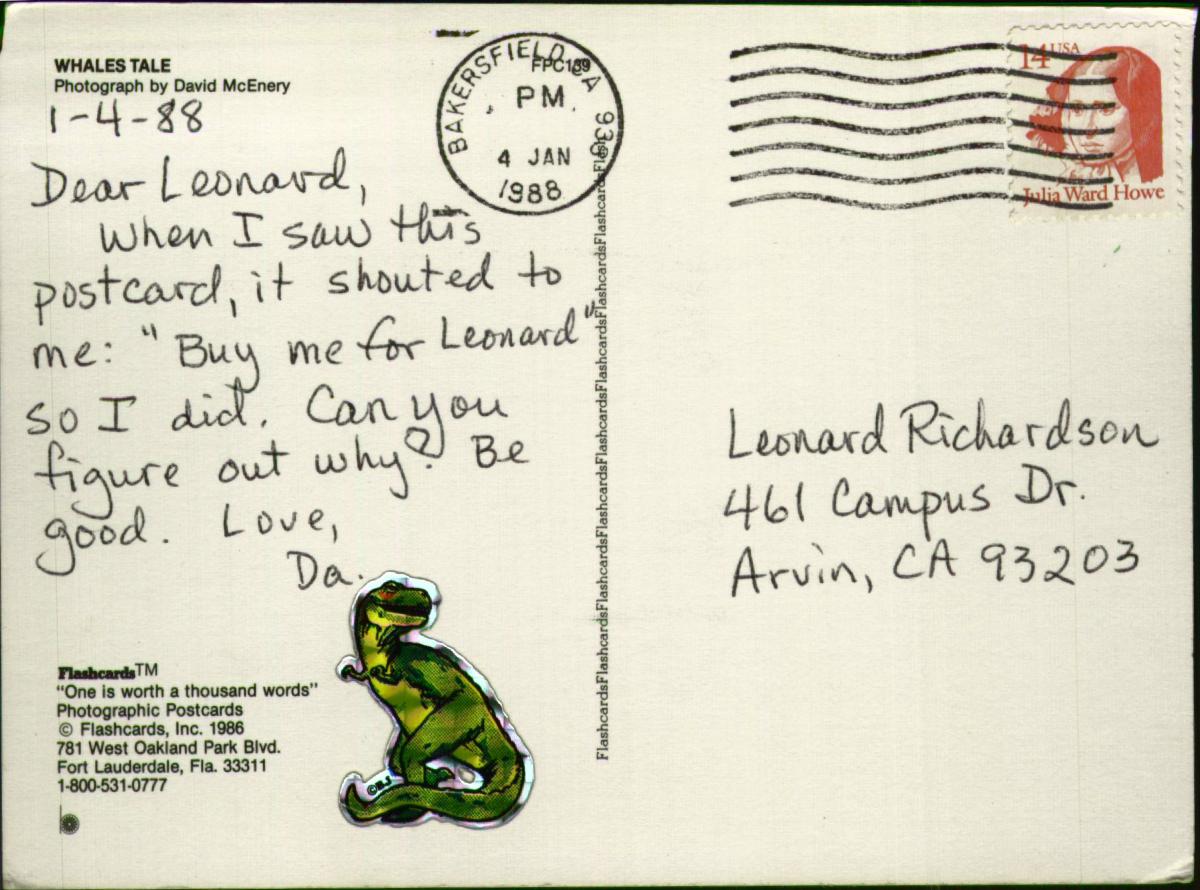 WHALES TALE
Photograph by David McEnery
1-4-88
Dear Leonard,
When I saw this
postcard, it shouted to
me: "Buy me for Leonard"
so I did. Can you
figure out why? Be
good. Love,
Da.
Flashcards™
"One is worth a thousand words"
Photographic Postcards
© Flashcards, Inc. 1986
781 West Oakland Park Blvd.
Fort Lauderdale, Fla. 33311
1-800-531-0777
©B.J.
FPC139
BAKERSFIELD, CA
PM
4 JAN
1988
FlashcardsFlashcardsFlashcardsFlashcardsFlashcardsFlashcardsFlashcardsFlashcards
14 USA
Julia Ward Howe
Leonard Richardson
461 Campus Dr.
Arvin, CA 93203